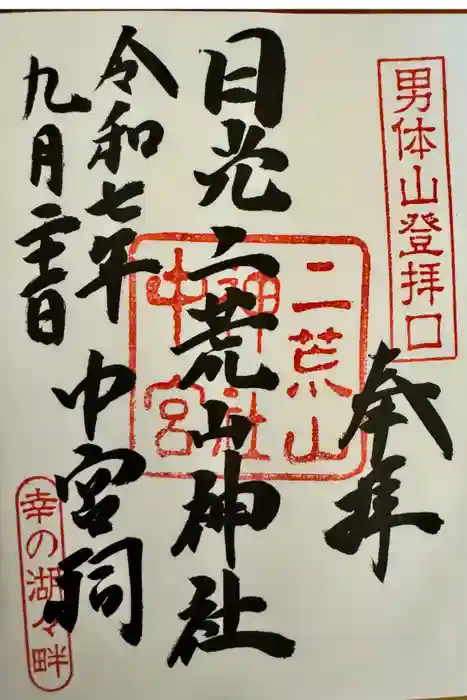 男体山登拝口
奉拝
日光二荒山神社
二荒山
神社
中宮
中宮祠
令和七年
九月二十一日
幸の湖々畔